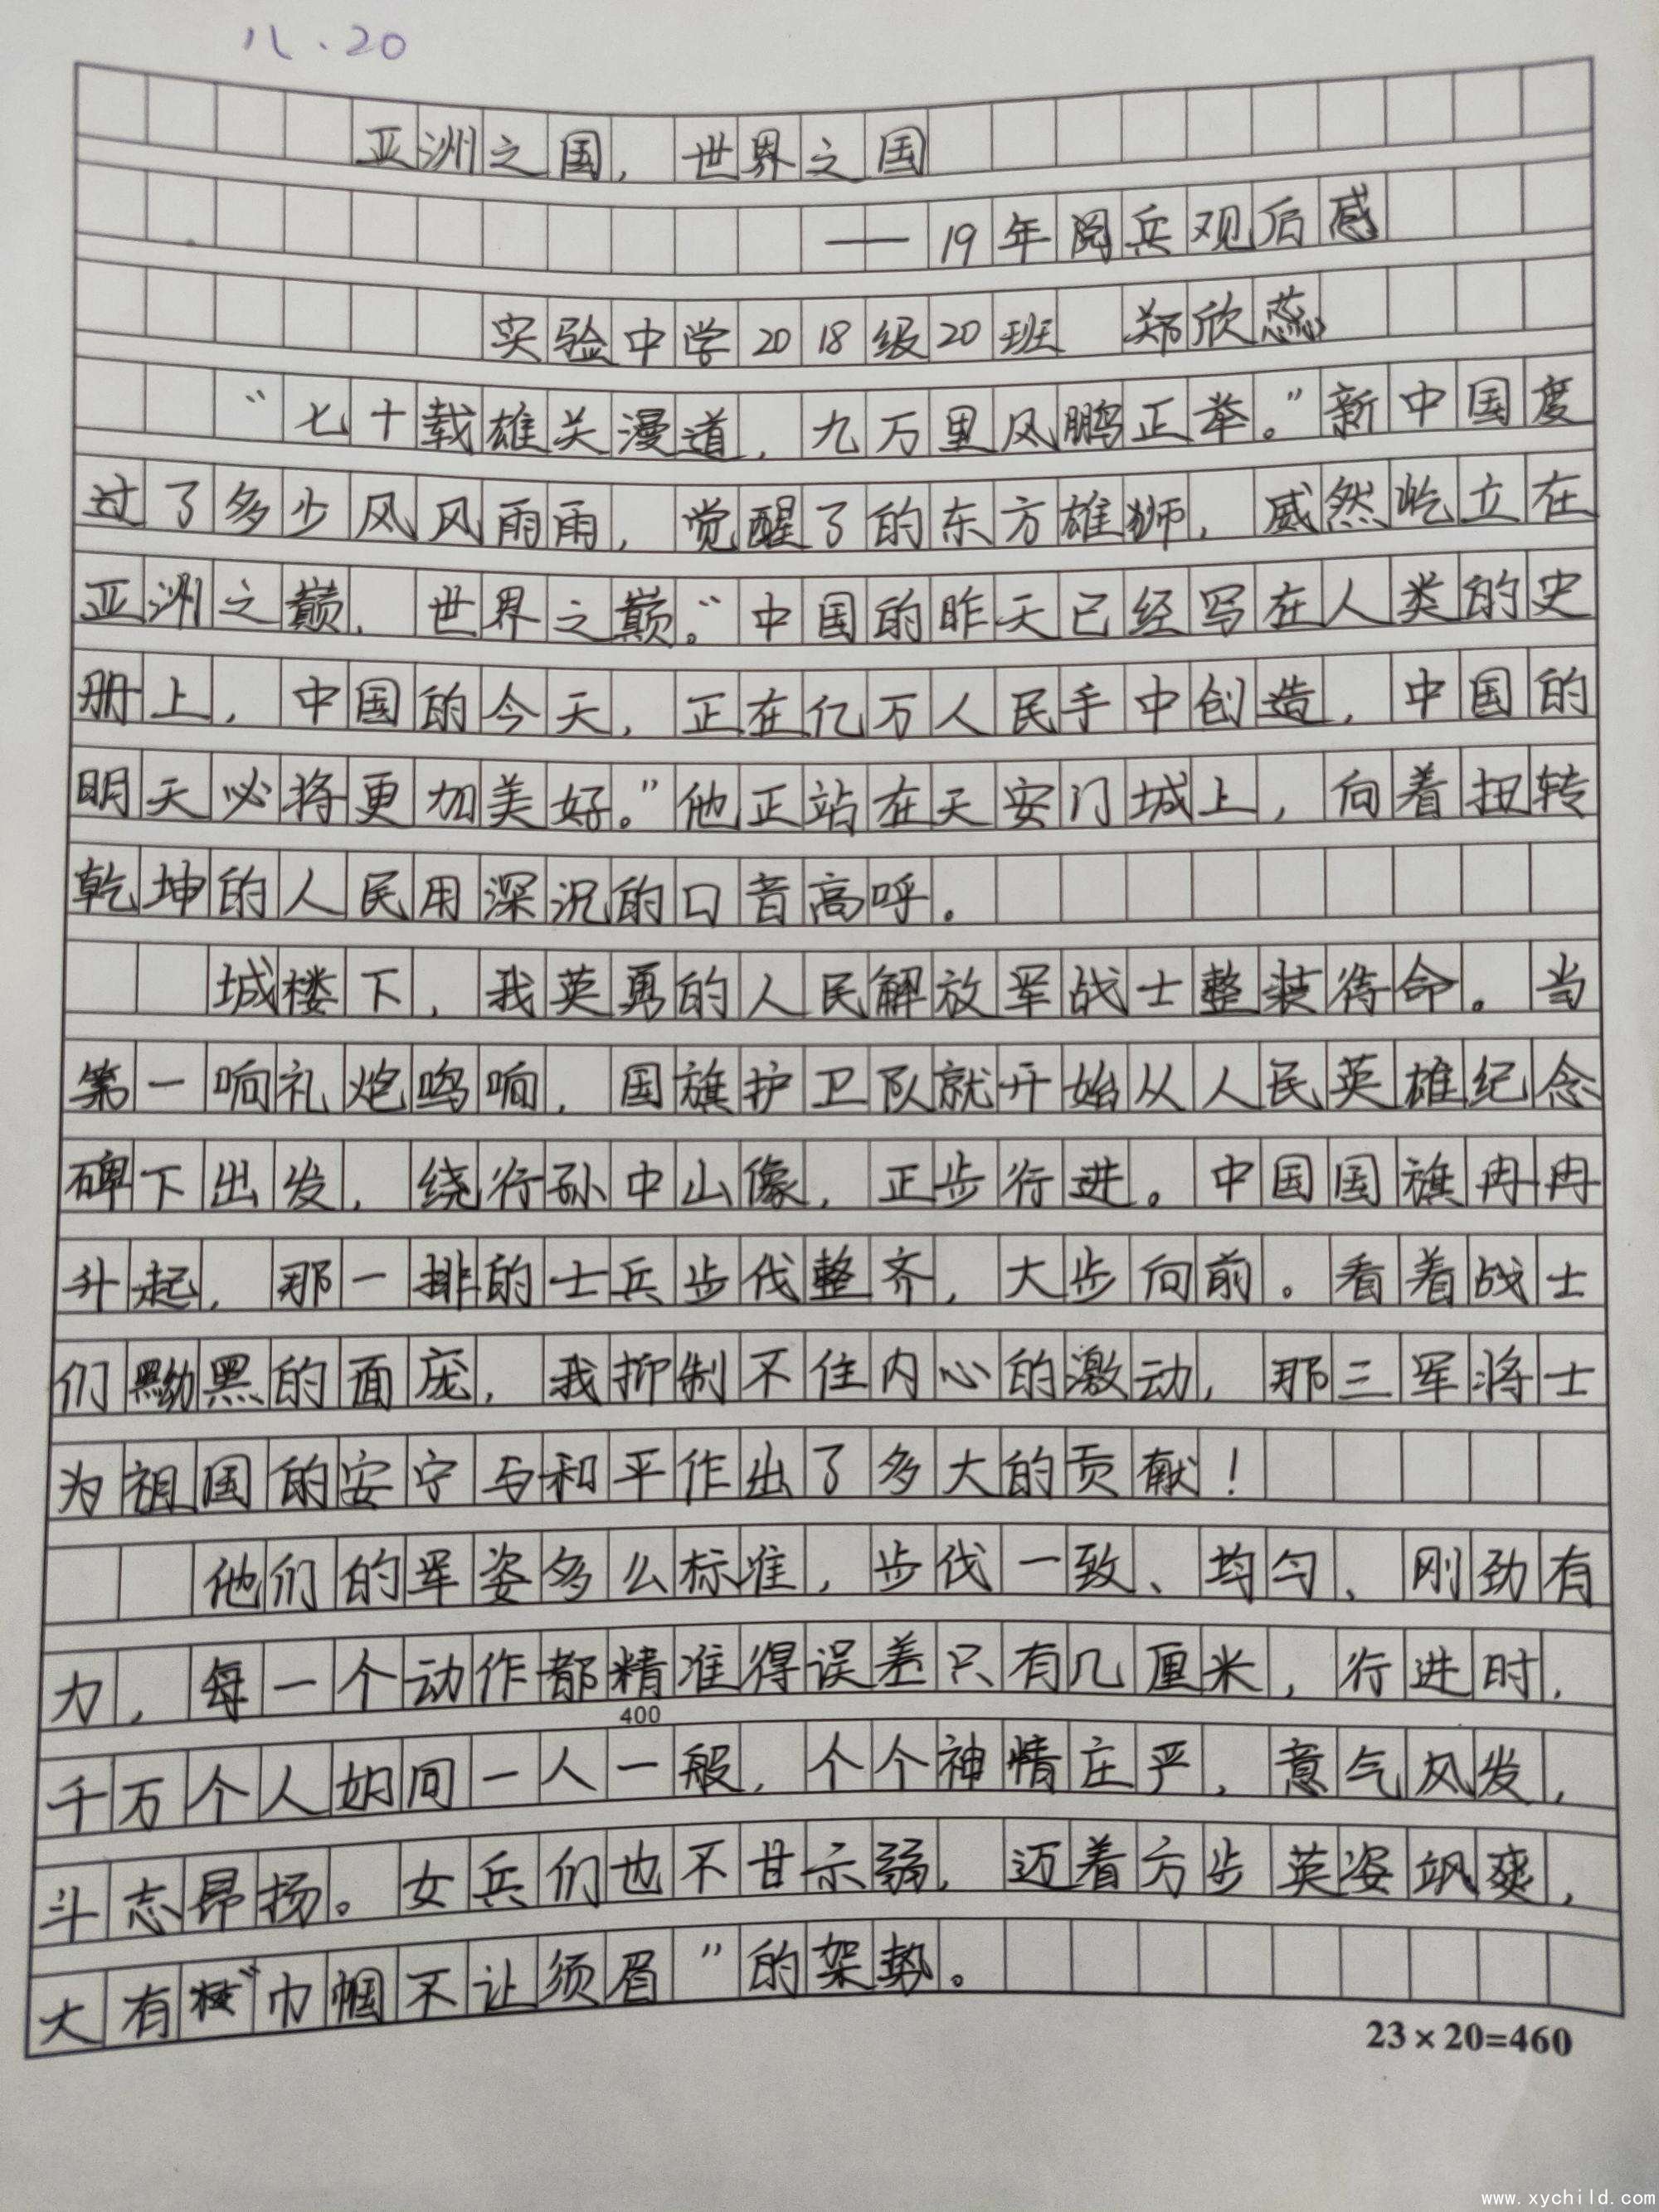 八.20
亚洲之国，世界之国
——19年阅兵观后感
实验中学2018级20班 郑欣蕊
“七十载雄关漫道，九万里风鹏正举。”新中国度
过了多少风风雨雨，觉醒了的东方雄狮，威然屹立在
亚洲之巅，世界之巅。“中国的昨天已经写在人类的史
册上，中国的今天，正在亿万人民手中创造，中国的
明天必将更加美好。”他正站在天安门城上，向着扭转
乾坤的人民用深沉的口音高呼。
城楼下，我英勇的人民解放军战士整装待命。当
第一响礼炮鸣响，国旗护卫队就开始从人民英雄纪念
碑下出发，绕行孙中山像，正步行进。中国国旗冉冉
升起，那一排的士兵步伐整齐，大步向前。看着战士
们黝黑的面庞，我抑制不住内心的激动，那三军将士
为祖国的安宁与和平作出了多大的贡献！
他们的军姿多么标准，步伐一致、均匀、刚劲有
力，每一个动作都精准得误差只有几厘米，行进时，
400
千万个人如同一人一般，个个神情庄严，意气风发，
斗志昂扬。女兵们也不甘示弱，迈着方步英姿飒爽，
大有“巾帼不让须眉”的架势。
23×20=460
www.xychild.com